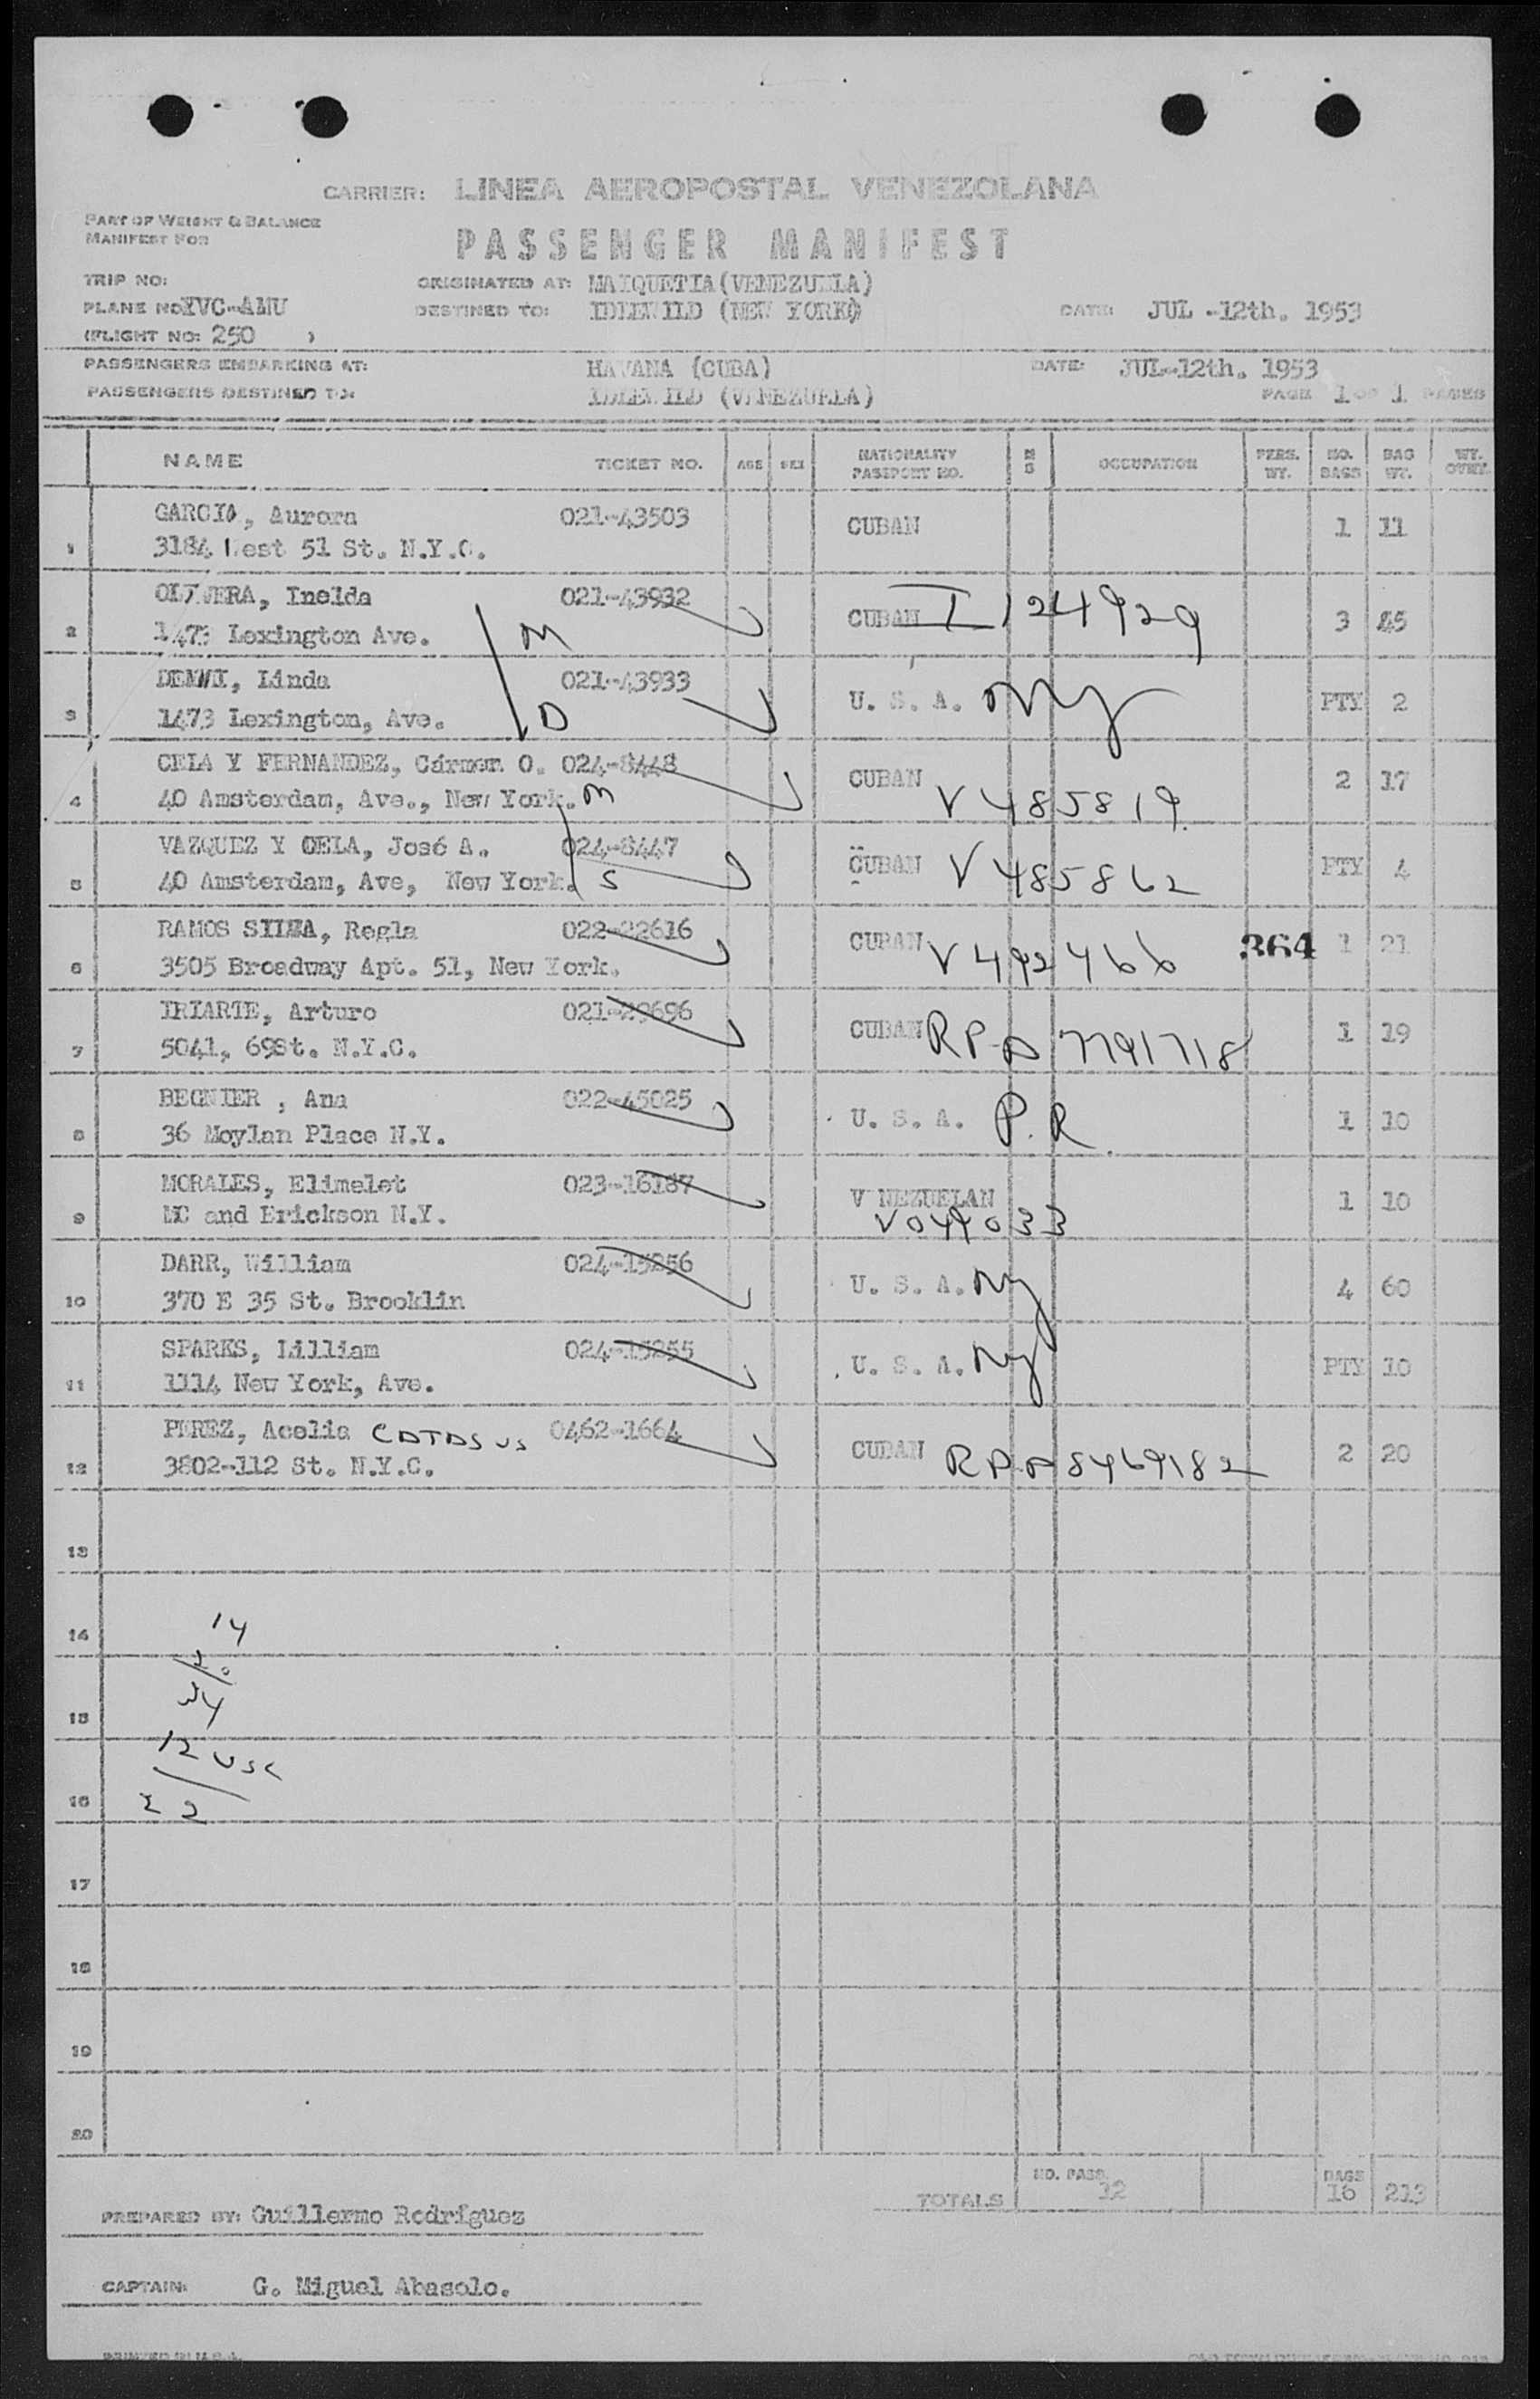 CARRIER: LINEA AEROPOSTAL VENEZOLANA
PART OF WEIGHT & BALANCE
MANIFEST FOR
PASSENGER MANIFEST
TRIP NO:
ORIGINATED AT: MAIQUETIA (VENEZUELA)
PLANE NO: YVC-AMU
DESTINED TO: IDLEWILD (NEW YORK)
DATE: JUL -12th. 1953
(FLIGHT NO: 250 )
PASSENGERS EMBARKING AT: HAVANA (CUBA) DATE: JUL-12th. 1953
PASSENGERS DESTINED TO: IDLEWILD (VENEZUELA) PAGE 1 OF 1 PAGES
NAME TICKET NO. AGE SEX NATIONALITY PASSPORT NO. M S OCCUPATION PERS. WT. NO. BAGS BAG WT. WT. OVER.
1 GARCIA, Aurora 021-43503 CUBAN 1 11
3184 West 51 St. N.Y.C.
2 OLIVERA, Inelda 021-43932 CUBAN I 124929 3 45
1473 Lexington Ave. M
3 Linda 021-43933 U. S. A. NY PTY 2
1473 Lexington, Ave. D
4 CELA Y FERNANDEZ, Cármen O. 024-8448 CUBAN V 485819 2 17
40 Amsterdam, Ave., New York. M
5 VAZQUEZ Y CELA, José A. 024-8447 CUBAN V 485862 PTY 4
40 Amsterdam, Ave, New York. S
6 RAMOS Regla 022-22616 CUBAN V 492466 364 1 21
3505 Broadway Apt. 51, New York.
7 IRIARTE, Arturo 021-29696 CUBAN RPA 7791718 1 19
5041, 69St. N.Y.C.
8 BEGNIER , Ana 022-45025 U. S. A. P.R. 1 10
36 Moylan Place N.Y.
9 MORALES, Elimelet 023-16187 V NEZUELAN 1 10
MC and Erickson N.Y. V044033
10 DARR, William 024-15256 U. S. A. NY 4 60
370 E 35 St. Brooklin
11 SPARKS, Lilliam 024-15255 U. S. A. NY PTY 10
1114 New York, Ave.
12 PEREZ, Acelia CATASUS 0462-1664 CUBAN RPA 8469182 2 20
3802-112 St. N.Y.C.
13
14 14
20
34
15
12 USC
16 22
17
18
19
20
TOTALS NO. PASS. 12 BAGS 16 213
PREPARED BY: Guillermo Rodríguez
CAPTAIN: G. Miguel Abasolo.
PRINTED IN U.S.A.